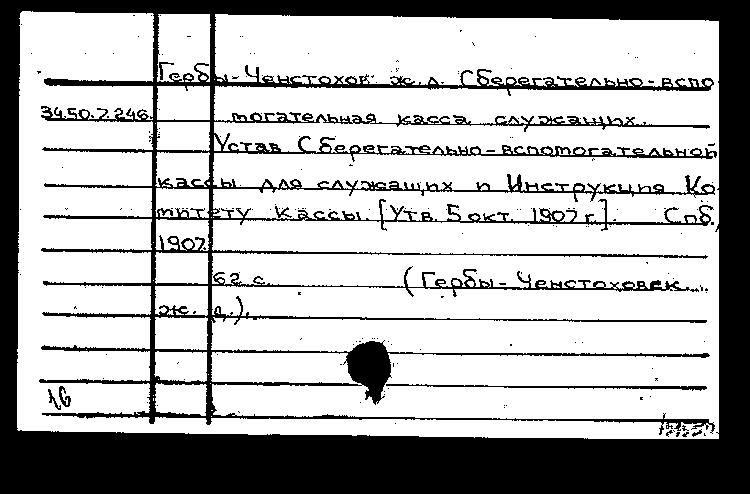 Гербы-Ченстохов. ж. д. Сберегательно-вспо-
34.50.7.246. могательная касса служащих.
Устав Сберегательно-вспомогательной
кассы для служащих и Инструкция Ко-
митету Кассы. [Утв. 5 окт. 1907 г.]. Спб.,
1907.
62 с. (Гербы-Ченстоховск.
ж. д.).
16